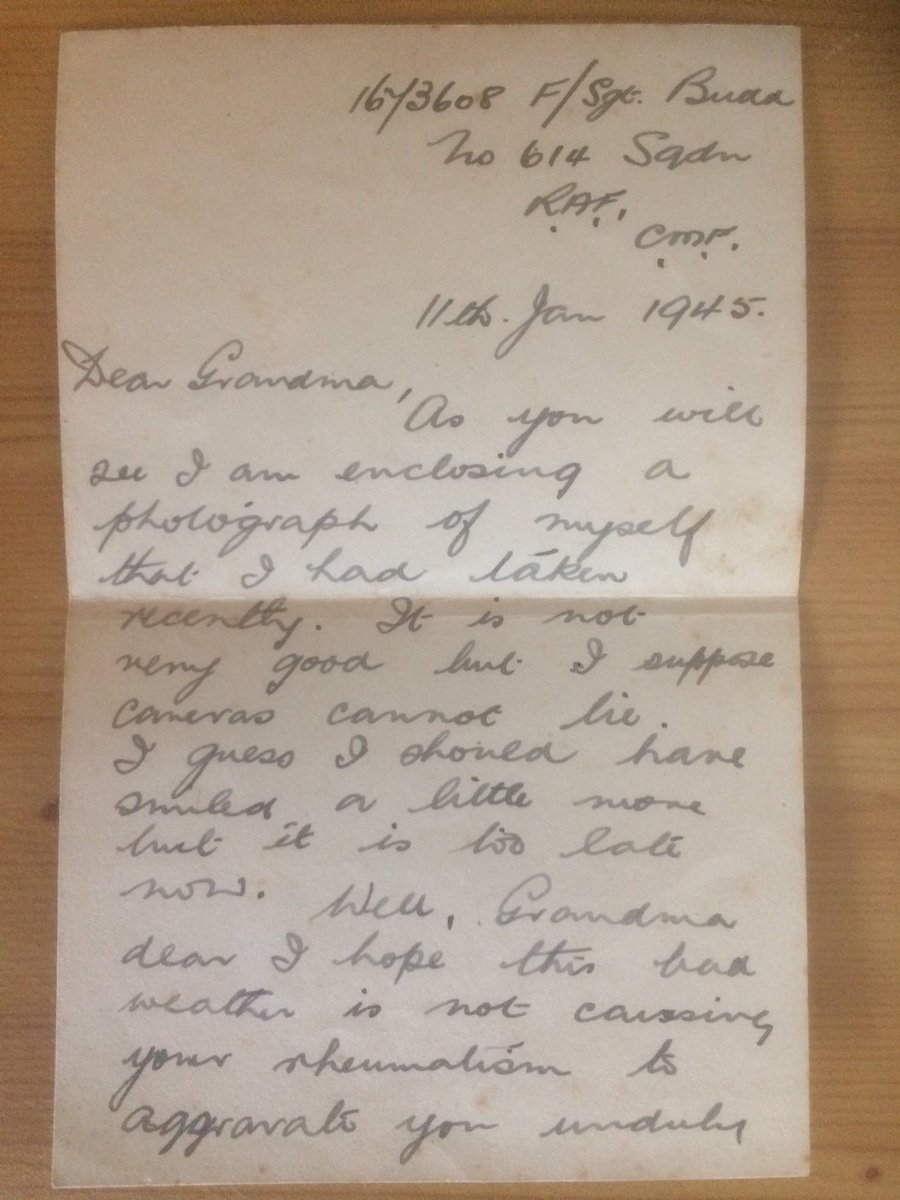 1673608 F/Sgt. Budd
No 614 Sqdn
R.A.F.,
C.M.F.
11th. Jan 1945.
Dear Grandma,
As you will
see I am enclosing a
photograph of myself
that I had taken
recently. It is not
very good but I suppose
cameras cannot lie.
I guess I should have
smiled a little more
but it is too late
now.
Well, Grandma
dear I hope this bad
weather is not causing
your rheumatism to
aggravate you unduly